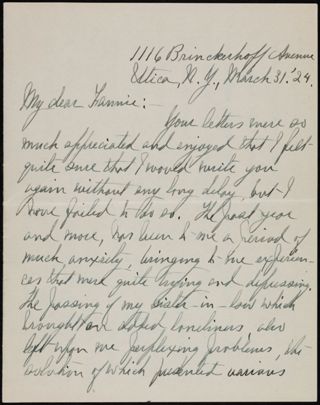 1116 Brinckerhoff Avenue
Utica, N. Y., March 31. '24.
My dear Fannie:-
Your letters were so
much appreciated and enjoyed that I felt
quite sure that I would write you
again without any long delay, but I
have failed to do so. The past year
and more, has been to me a period of
much anxiety, bringing to me experien-
ces that were quite trying and depressing.
The passing of my sister-in-law which
brought on added loneliness, also
left upon me perplexing problems, the
solution of which presented various